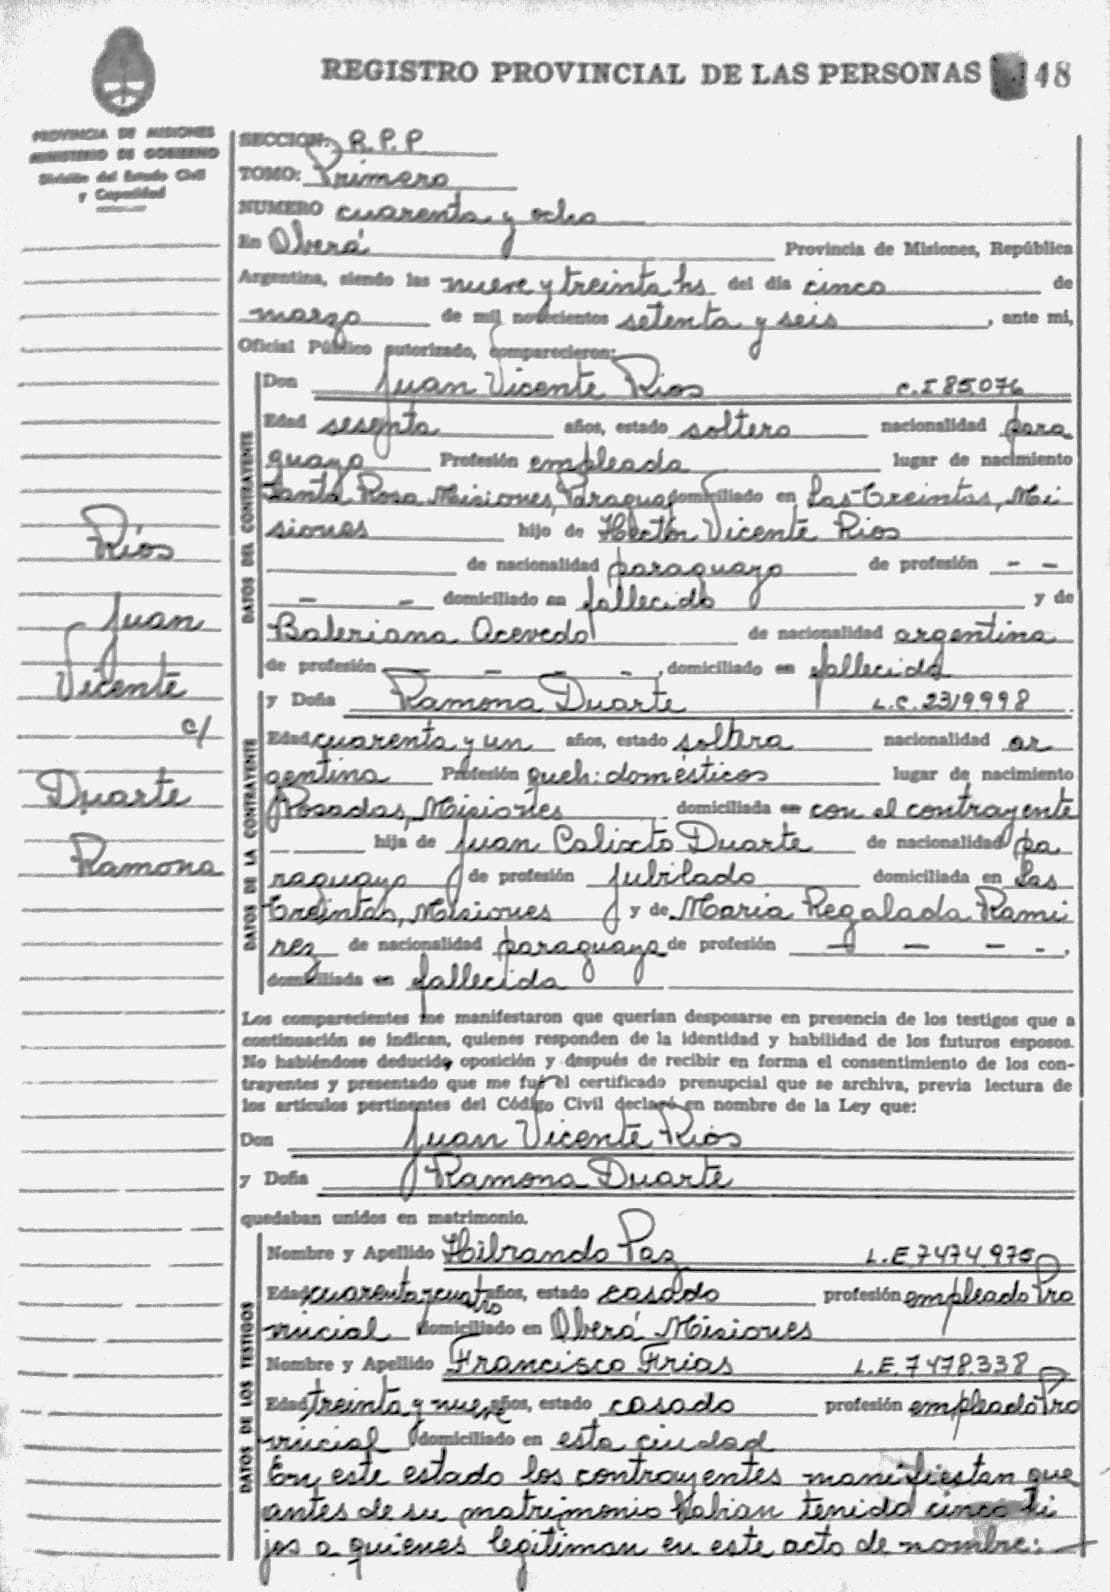 REGISTRO PROVINCIAL DE LAS PERSONAS 48
PROVINCIA DE MISIONES
MINISTERIO DE GOBIERNO
División del Estado Civil
y Capacidad
SECCION: R.P.P
TOMO: Primero
NUMERO cuarenta y ocho
En Oberá Provincia de Misiones, República
Argentina, siendo las nueve y treinta hs del día cinco de
marzo de mil novecientos setenta y seis, ante mi,
Oficial Público autorizado, comparecieron:
DATOS DEL CONTRAYENTE
Don Juan Vicente Rios C.I 85.076
Edad sesenta años, estado soltero nacionalidad para
guaya Profesión empleada lugar de nacimiento
Santa Rosa Misiones, Paraguay domiciliado en Las Treintas, Mi
siones hijo de Hector Vicente Rios
de nacionalidad paraguayo de profesión - -
- - domiciliado en fallecido y de
Baleriana Acevedo de nacionalidad argentina
de profesión - - - -, domiciliado en fallecida
Ríos
Juan
Vicente
c/
Duarte
Ramona
DATOS DE LA CONTRAYENTE
y Doña Ramona Duarte L.C. 2319998
Edad cuarenta y un años, estado soltera nacionalidad ar
gentina Profesión queh: domésticos lugar de nacimiento
Posadas, Misiones domiciliada en con el contrayente
hija de Juan Calixto Duarte de nacionalidad pa
raguayo de profesión jubilado domiciliada en Las
Treintas, Misiones y de Maria Regalada Rami
rez de nacionalidad paraguaya de profesión - - - -,
domiciliada en fallecida
Los comparecientes me manifestaron que querían desposarse en presencia de los testigos que a
continuación se indican, quienes responden de la identidad y habilidad de los futuros esposos.
No habiéndose deducido oposición y después de recibir en forma el consentimiento de los con-
trayentes y presentado que me fué el certificado prenupcial que se archiva, previa lectura de
los artículos pertinentes del Código Civil declaró en nombre de la Ley que:
Don Juan Vicente Ríos
y Doña Ramona Duarte
quedaban unidos en matrimonio.
DATOS DE LOS TESTIGOS
Nombre y Apellido Hibrando Paz L.E 7474975
Edad cuarenta y cuatro años, estado casado profesión empleado Pro
vincial domiciliado en Oberá Misiones
Nombre y Apellido Francisco Frias L.E. 7478.338
Edad treinta y nueve años, estado casado profesión empleado Pro
vincial domiciliado en esta ciudad
En este estado los contrayentes manifiestan que
antes de su matrimonio habian tenido cinco hi
jos a quienes legitiman en este acto de nombre: